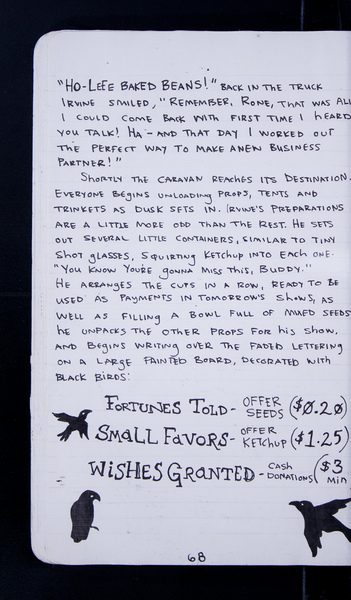 "HO-LEEE BAKED BEANS!" BACK IN THE TRUCK
IRVINE SMILED, "REMEMBER, RONE, THAT WAS ALL
I COULD COME BACK WITH FIRST TIME I HEARD
YOU TALK! HA - AND THAT DAY I WORKED OUT
THE PERFECT WAY TO MAKE A NEW BUSINESS
PARTNER!"
SHORTLY THE CARAVAN REACHES ITS DESTINATION.
EVERYONE BEGINS UNLOADING PROPS, TENTS AND
TRINKETS AS DUSK SETS IN. IRVINE'S PREPARATIONS
ARE A LITTLE MORE ODD THAN THE REST. HE SETS
OUT SEVERAL LITTLE CONTAINERS, SIMILAR TO TINY
SHOT GLASSES, SQUIRTING KETCHUP INTO EACH ONE.
"YOU KNOW YOU'RE GONNA MISS THIS, BUDDY."
HE ARRANGES THE CUPS IN A ROW, READY TO BE
USED AS PAYMENTS IN TOMORROW'S SHOWS, AS
WELL AS FILLING A BOWL FULL OF MIXED SEEDS
HE UNPACKS THE OTHER PROPS FOR HIS SHOW,
AND BEGINS WRITING OVER THE FADED LETTERING
ON A LARGE PAINTED BOARD, DECORATED WITH
BLACK BIRDS:
FORTUNES TOLD - OFFER SEEDS ($0.20)
SMALL FAVORS - OFFER KETCHUP ($1.25)
WISHES GRANTED - CASH DONATIONS ($3 MIN
68